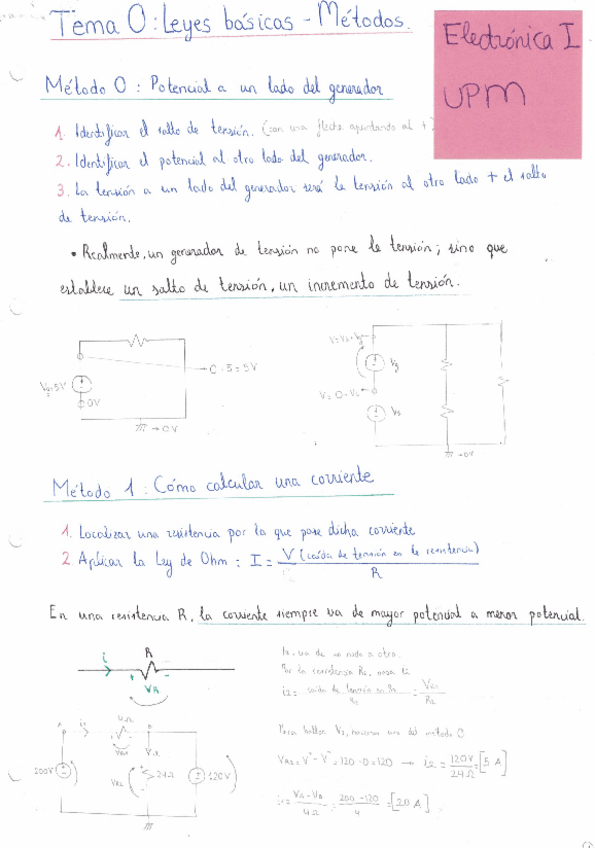 Tema 0: Leyes básicas - Métodos.
Electrónica I
UPM
Método 0: Potencial a un lado del generador
1. Identificar el salto de tensión. (con una flecha apuntando al +)
2. Identificar el potencial al otro lado del generador.
3. La tensión a un lado del generador será la tensión al otro lado + el salto
de tensión.
• Realmente, un generador de tensión no pone la tensión; sino que
establece un salto de tensión, un incremento de tensión.
Vg
5V
0V
0V
Vg
Vs
0V
Método 1: Cómo calcular una corriente
1. Localizar una resistencia por la que pase dicha corriente
2. Aplicar la Ley de Ohm: I = V (caída de tensión en la resistencia)
R
En una resistencia R, la corriente siempre va de mayor potencial a menor potencial.
i
R
+ -
VR
de un nodo a otro.
4Ω
200V
24Ω
120V
= 120 - 0 = 120 → i2 = 120V / 24Ω = [5 A]
= 200 - 120 / 4 = [20 A]